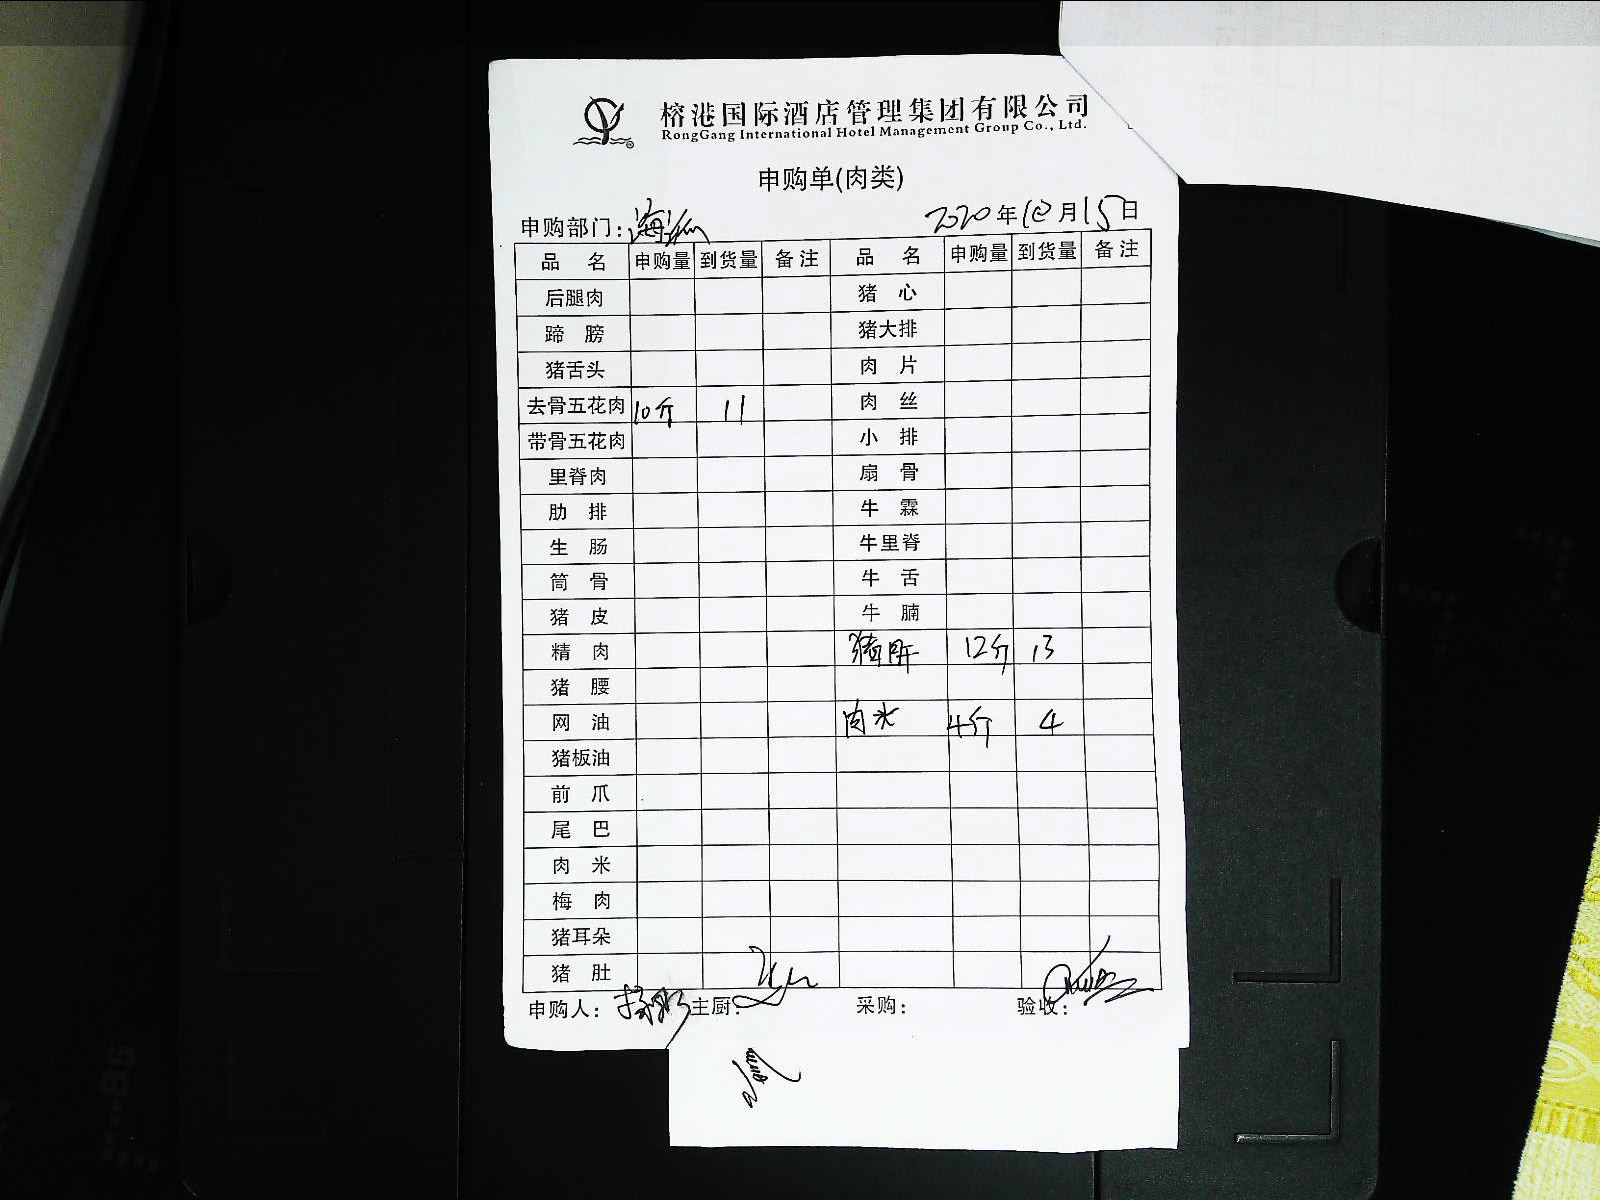 榕港国际酒店管理集团有限公司
RongGang International Hotel Management Group Co., Ltd.
申购单(肉类)
申购部门: 海派 2020年12月15日
品 名 申购量 到货量 备注 品 名 申购量 到货量 备注
后腿肉 猪 心
蹄 膀 猪大排
猪舌头 肉 片
去骨五花肉 10斤 11 肉 丝
带骨五花肉 小 排
里脊肉 扇 骨
肋 排 牛 霖
生 肠 牛里脊
筒 骨 牛 舌
猪 皮 牛 腩
精 肉 猪肝 12斤 13
猪 腰
网 油 肉米 4斤 4
猪板油
前 爪
尾 巴
肉 米
梅 肉
猪耳朵
猪 肚
申购人: 主厨: 采购: 验收: